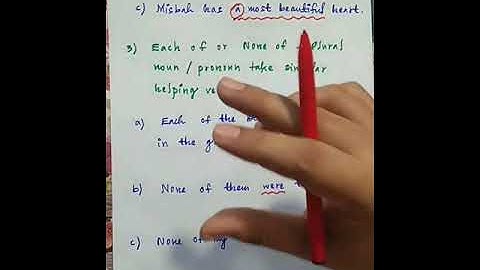 c) Misbah has a most beautiful heart.
3) Each of or None of
noun / pronoun take
helping
a) Each of the
in the
b) None of them were
c) None of my